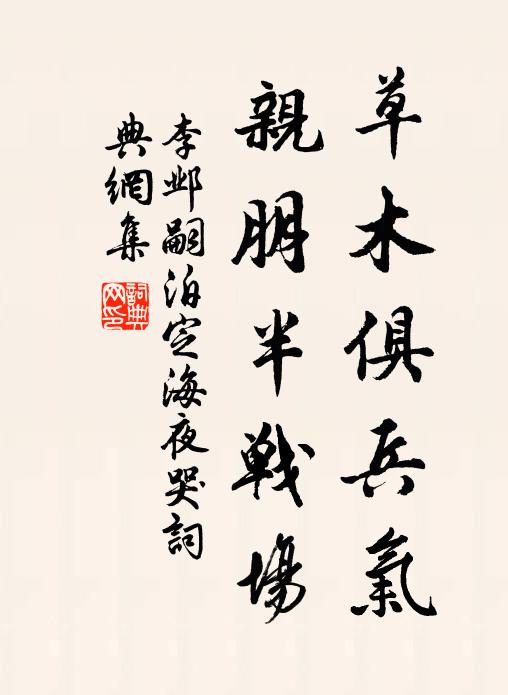 草木俱兵氣
親朋半戰場
李邺嗣泊定海夜哭詞
典網集
詞典网印